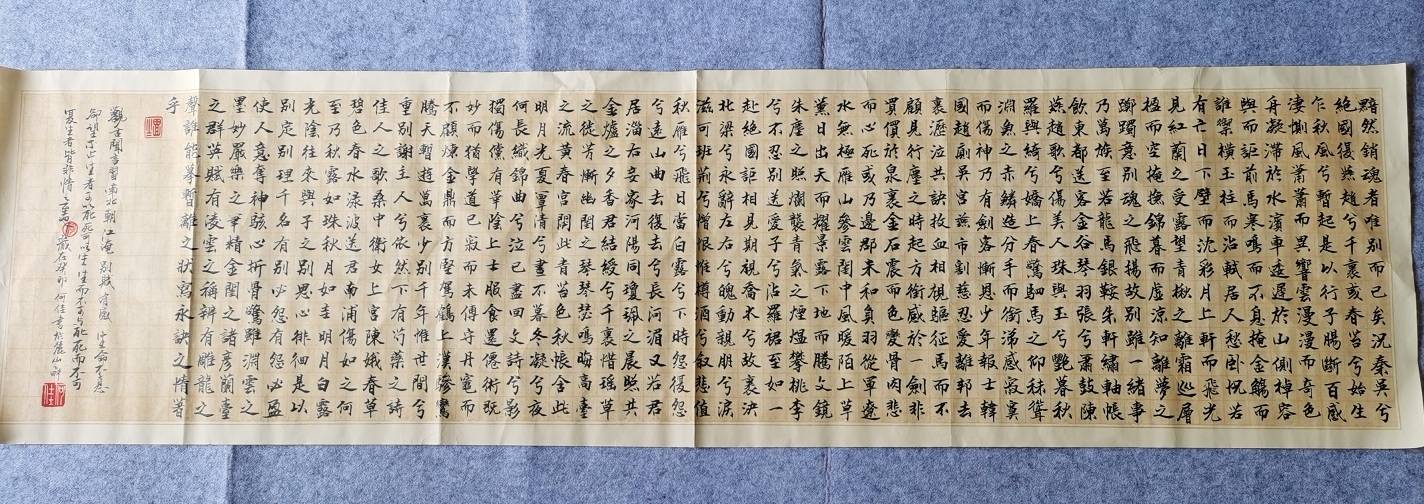 黯然銷魂者唯別而已矣況秦吳兮
絕國復燕趙兮千裏或春苔兮始生
乍秋風兮暫起是以行子腸斷百感
淒惻風蕭蕭而異響雲漫漫而奇色
舟凝滯於水濱車逶遲於山側棹容
與而詎前馬寒鳴而不息掩金觴而
誰禦橫玉柱而沾軾居人愁臥怳若
有亡日下壁而沈彩月上軒而飛光
見紅蘭之受露望青楸之離霜巡層
楹而空掩撫錦幕而虛涼知離夢之
躑躅意別魂之飛揚故別雖一緒事
乃萬族至若龍馬銀鞍朱軒繡軸帳
飲東都送客金谷琴羽張兮蕭鼓陳
燕趙歌兮傷美人珠與玉兮艷暮秋
羅與綺兮嬌上春驚駟馬之仰秣聳
淵魚之赤鱗造分手而銜涕感寂寞
而傷神乃有劍客慚恩少年報士韓
國趙廁吳宮燕市割慈忍愛離邦去
裏瀝泣共訣抆血相視驅征馬而不
顧見行塵之時起方銜感於一劍非
買價於泉裏金石震而色變骨肉悲
而心死或乃邊郡未和負羽從軍遼
水無極雁山參雲閨中風暖陌上草
薰日出天而耀景露下地而騰文鏡
朱塵之照爛襲青氣之煙熅攀桃李
兮不忍別送愛子兮沾羅裙至如一
赴絕國詎相見期視喬木兮故裏決
北梁兮永辭左右兮魄動親朋兮淚
滋可班荊兮憎恨惟樽酒兮敘悲值
秋雁兮飛日當白露兮下時怨復怨
兮遠山曲去復去兮長河湄又若君
居淄右妾家河陽同瓊珮之晨照共
金爐之夕香君結綬兮千裏惜瑤草
之徒芳慚幽閨之琴瑟晦高臺
之流黃春宮閟此青苔色秋帳含此
明月光夏簟清兮晝不暮冬凝兮夜
何長織錦曲兮泣已盡回文詩兮影
獨傷儻有華陰上士服食還僊術既
妙而猶學道已寂而未傳守丹竈而
不顧煉金鼎而方堅駕鶴上漢驂鸞
騰天暫遊萬裏少別千年惟世間兮
重別謝主人兮依然下有芍藥之詩
佳人之歌桑中衛女上宮陳娥春草
碧色春水淥波送君南浦傷如之何
至乃秋露如珠秋月如圭明月白露
光陰往來與子之別思心徘徊是以
別定別理千名有別必怨有怨必盈
使人意奪神駭心折骨驚雖淵雲之
墨妙嚴樂之筆精金閨之諸彥蘭臺
之群英賦有凌雲之稱辨有雕龍之
聲誰能摹暫離之狀寫永訣之情者
乎
觀古聞言習南北朝江淹別賦有感
生者可以死死可以生生而不可與死死而不可
復生者皆非情之至 歲在 何佳書於麓山
何佳